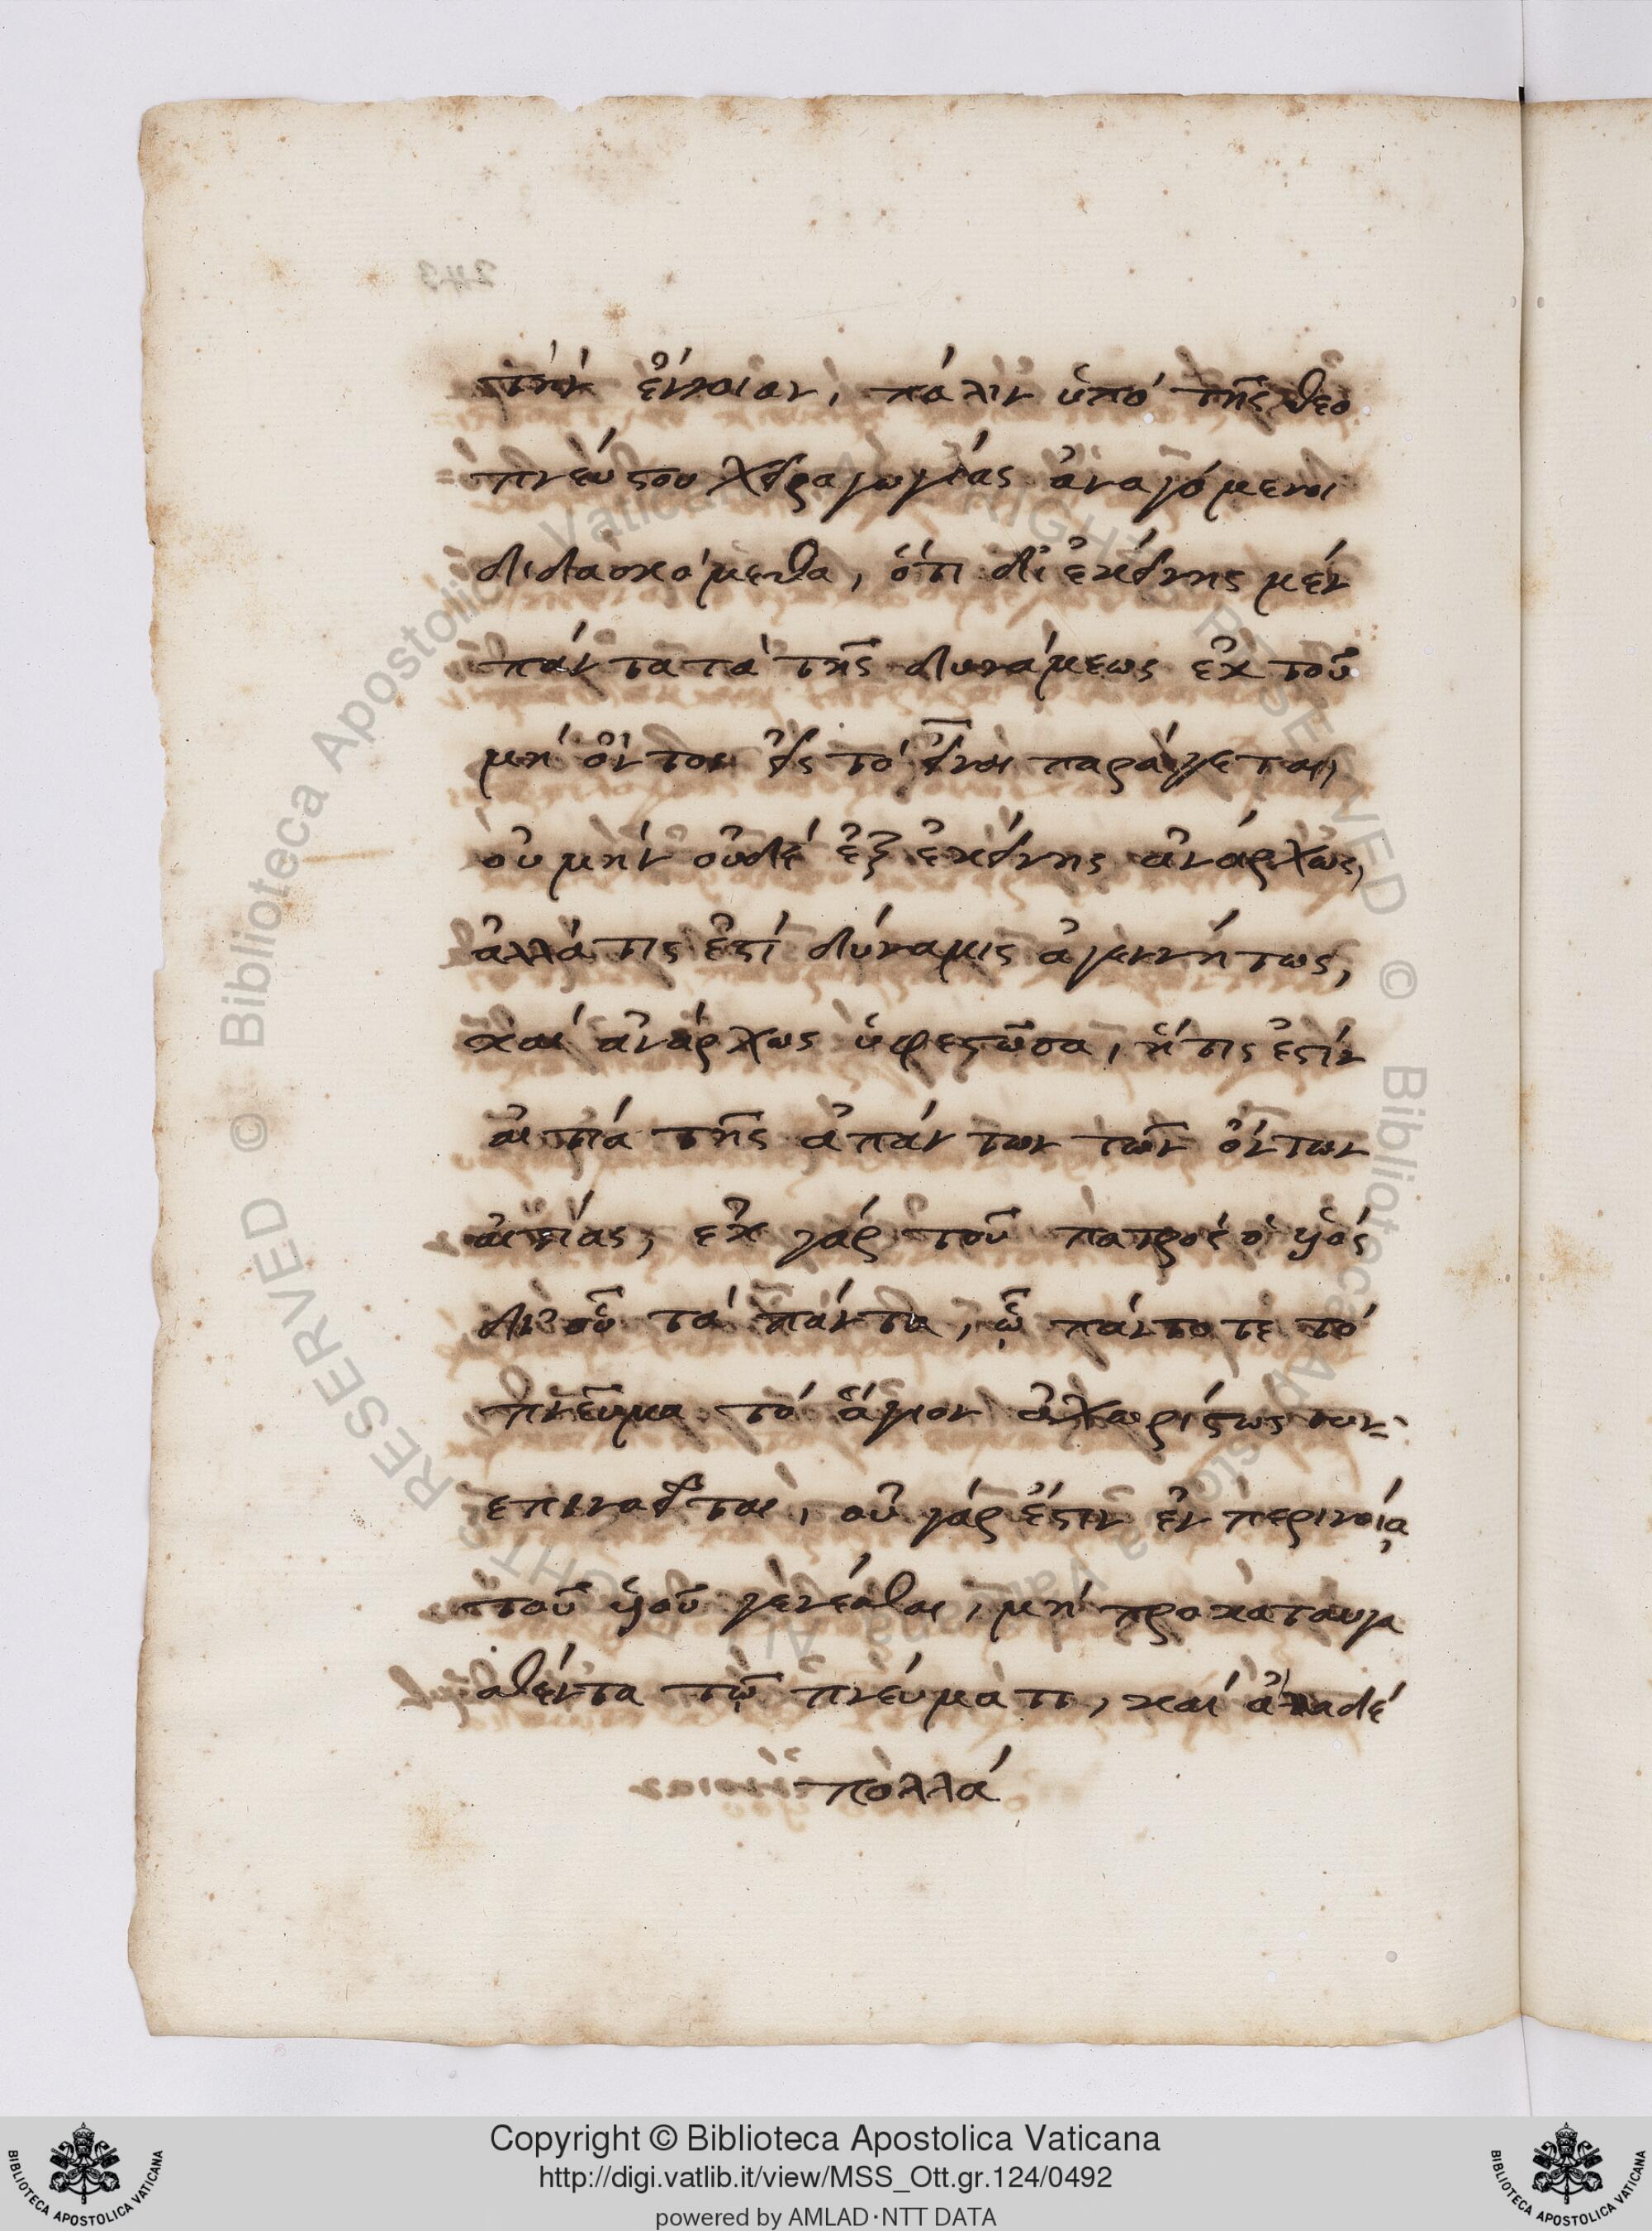 τὴν ἔννοιαν, πάλιν ὑπὸ τῆς θεο
πνεύστου χειραγωγίας ἀναγόμενοι
διδασκόμεθα, ὅτι δι' ἐκείνης μὲν
πάντα τὰ τῆς δυνάμεως ἐκ τοῦ
μὴ ὄντος εἰς τὸ εἶναι παράγεται,
οὐ μὴν οὐδὲ ἐξ ἐκείνης ἀνάρχως,
ἀλλά τις ἐστὶ δύναμις ἀγεννήτως,
καὶ ἀνάρχως ὑφεστῶσα, ἥτις ἐστὶν
αἰτία τῆς ἁπάντων τῶν ὄντων
αἰτίας, ἐκ γὰρ τοῦ πατρὸς ὁ υἱός
δι' οὗ τὰ πάντα, ᾧ πάντοτε τὸ
πνεῦμα τὸ ἅγιον ἀχωρίστως συν-
επινοεῖται, οὐ γὰρ ἔστιν ἐν περινοίᾳ
τοῦ υἱοῦ γενέσθαι, μὴ προκαταυγα
σθέντα τῷ πνεύματι, καὶ ἄλλα δὲ
πολλά
243
Biblioteca Apostolica Vaticana ALL RIGHTS RESERVED ©
Copyright © Biblioteca Apostolica Vaticana
http://digi.vatlib.it/view/MSS_Ott.gr.124/0492
powered by AMLAD·NTT DATA
BIBLIOTECA APOSTOLICA VATICANA
BIBLIOTECA APOSTOLICA VATICANA